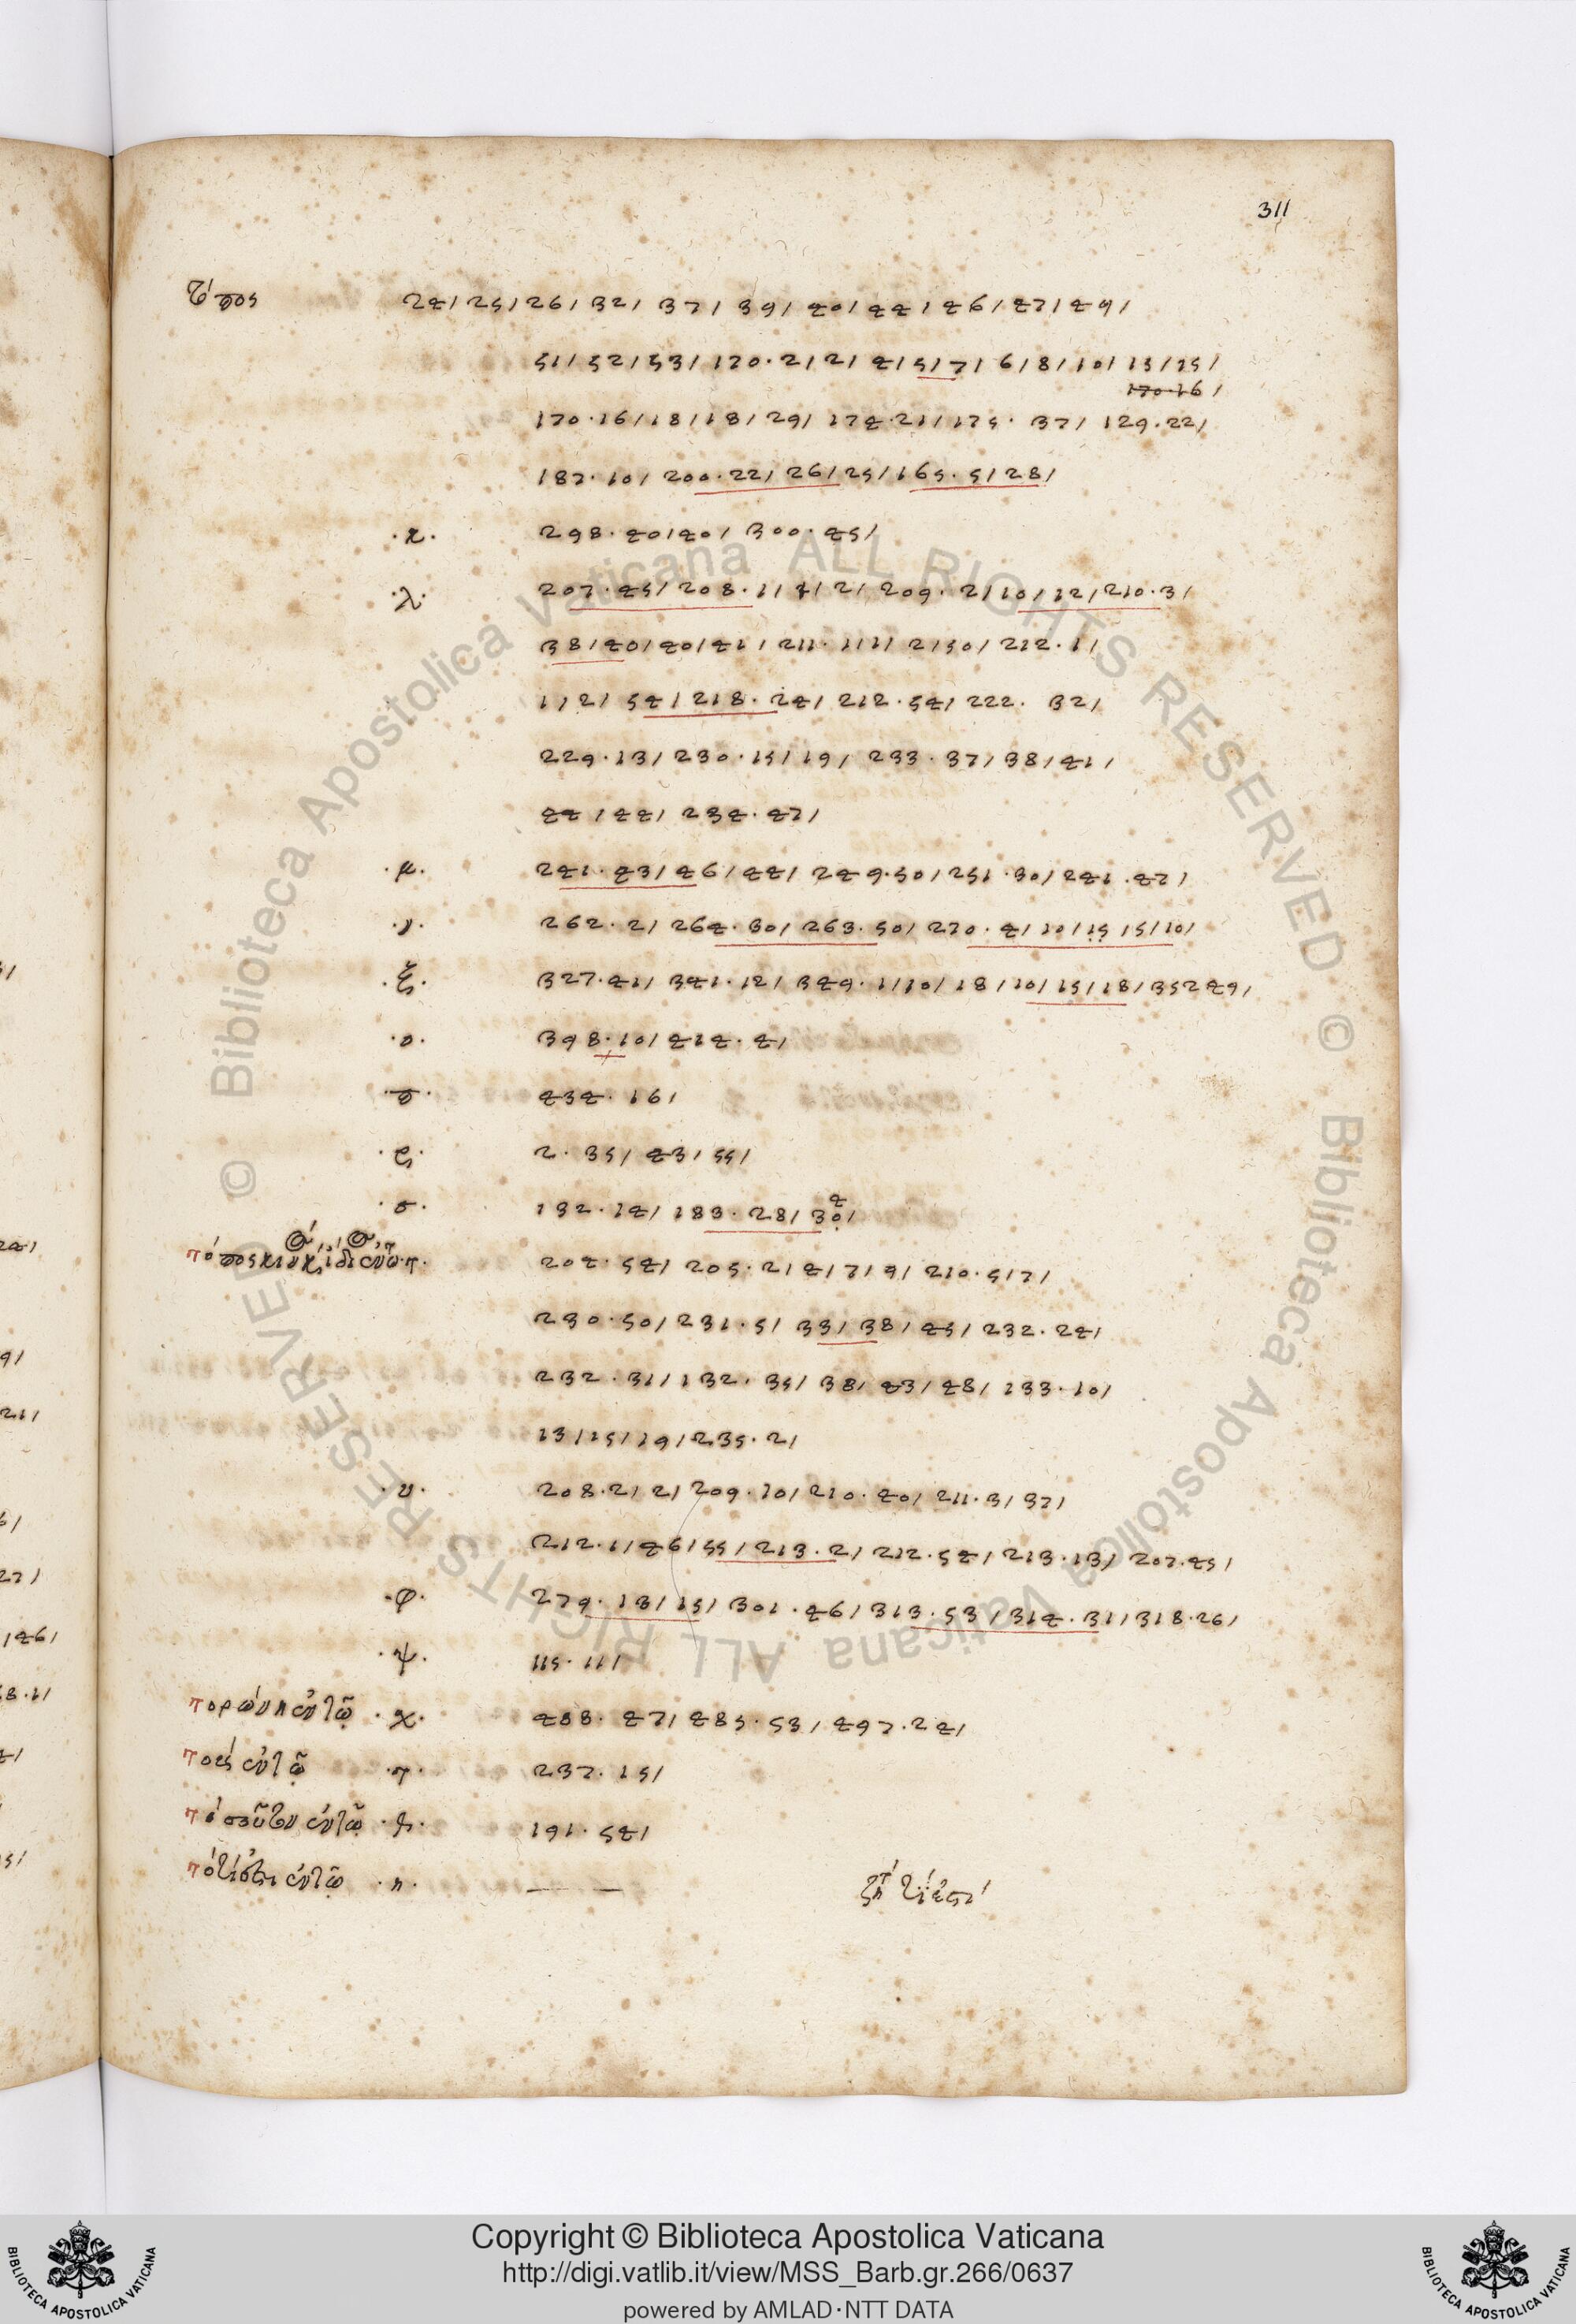 311
τόπος 24/ 25/ 26/ 32/ 37/ 39/ 40/ 44/ 46/ 47/ 49/
51/ 52/ 53/ 170· 2/ 2/ 4/ 5/ 7/ 6/ 8/ 10/ 13/ 15/
170·16/
170·16/ 18/ 18/ 29/ 174·21/ 175· 37/ 129·22/
187·10/ 200·22/ 26/ 25/ 165· 5/ 28/
·κ· 298· 40/ 40/ 300· 45/
·λ· 207· 45/ 208· 1/ 2/ 209· 2/ 10/ 12/ 210·3/
38/ 40/ 40/ 41/ 211· 1/ 1/ 2/ 50/ 212·1/
1/ 2/ 54/ 218· 24/ 212·54/ 222· 32/
229·13/ 230·15/ 19/ 233· 37/ 38/ 41/
44/ 44/ 234· 47/
·μ· 241· 43/ 46/ 44/ 249·50/ 251·30/ 241·47/
·ν· 262· 2/ 264· 30/ 263· 50/ 270· 4/ 10/ 15/ 5/ 10/
·ξ· 327·41/ 341·12/ 349· 1/ 10/ 18/ 10/ 15/ 18/ 352 49/
·ο· 398·10/ 414· 4/
·π· 434· 16/
·ρ· 2· 35/ 43/ 55/
·σ· 132·14/ 183· 28/ 30/
4
·τ· 204· 54/ 205· 2/ 4/ 7/ 9/ 210· 5/ 7/
230·50/ 231·5/ 33/ 38/ 45/ 232·24/
232·31/ 132· 35/ 38/ 43/ 48/ 133·10/
13/ 15/ 19/ 235·2/
·υ· 208·2/ 2/ 209·10/ 210·40/ 211·3/ 37/
212·1/ 46/ 55/ 213·2/ 212·54/ 213·13/ 207·45/
·φ· 279·13/ 15/ 301·46/ 313·53/ 314·31/ 318·26/
·ψ· 115·11/
·χ· 488· 47/ 485·53/ 497·24/
·τ· 237·15/
191·54/
·η· — —
© Biblioteca Apostolica Vaticana ALL RIGHTS RESERVED
© Biblioteca Apostolica Vaticana ALL RIGHTS RESERVED
Copyright © Biblioteca Apostolica Vaticana
http://digi.vatlib.it/view/MSS_Barb.gr.266/0637
powered by AMLAD·NTT DATA
BIBLIOTECA APOSTOLICA VATICANA
BIBLIOTECA APOSTOLICA VATICANA